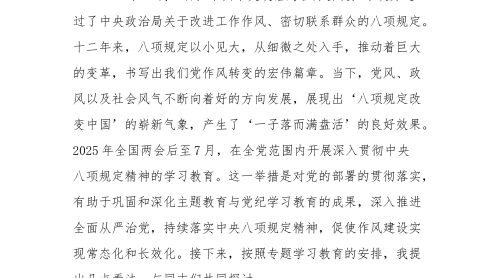 过了中央政治局关于改进工作作风、密切联系群众的八项规定。
十二年来，八项规定以小见大，从细微之处入手，推动着巨大
的变革，书写出我们党作风转变的宏伟篇章。当下，党风、政
风以及社会风气不断向着好的方向发展，展现出‘八项规定改
变中国’的崭新气象，产生了‘一子落而满盘活’的良好效果。
2025 年全国两会后至 7 月，在全党范围内开展深入贯彻中央
八项规定精神的学习教育。这一举措是对党的部署的贯彻落实，
有助于巩固和深化主题教育与党纪学习教育的成果，深入推进
全面从严治党，持续落实中央八项规定精神，促使作风建设实
现常态化和长效化。接下来，按照专题学习教育的安排，我提